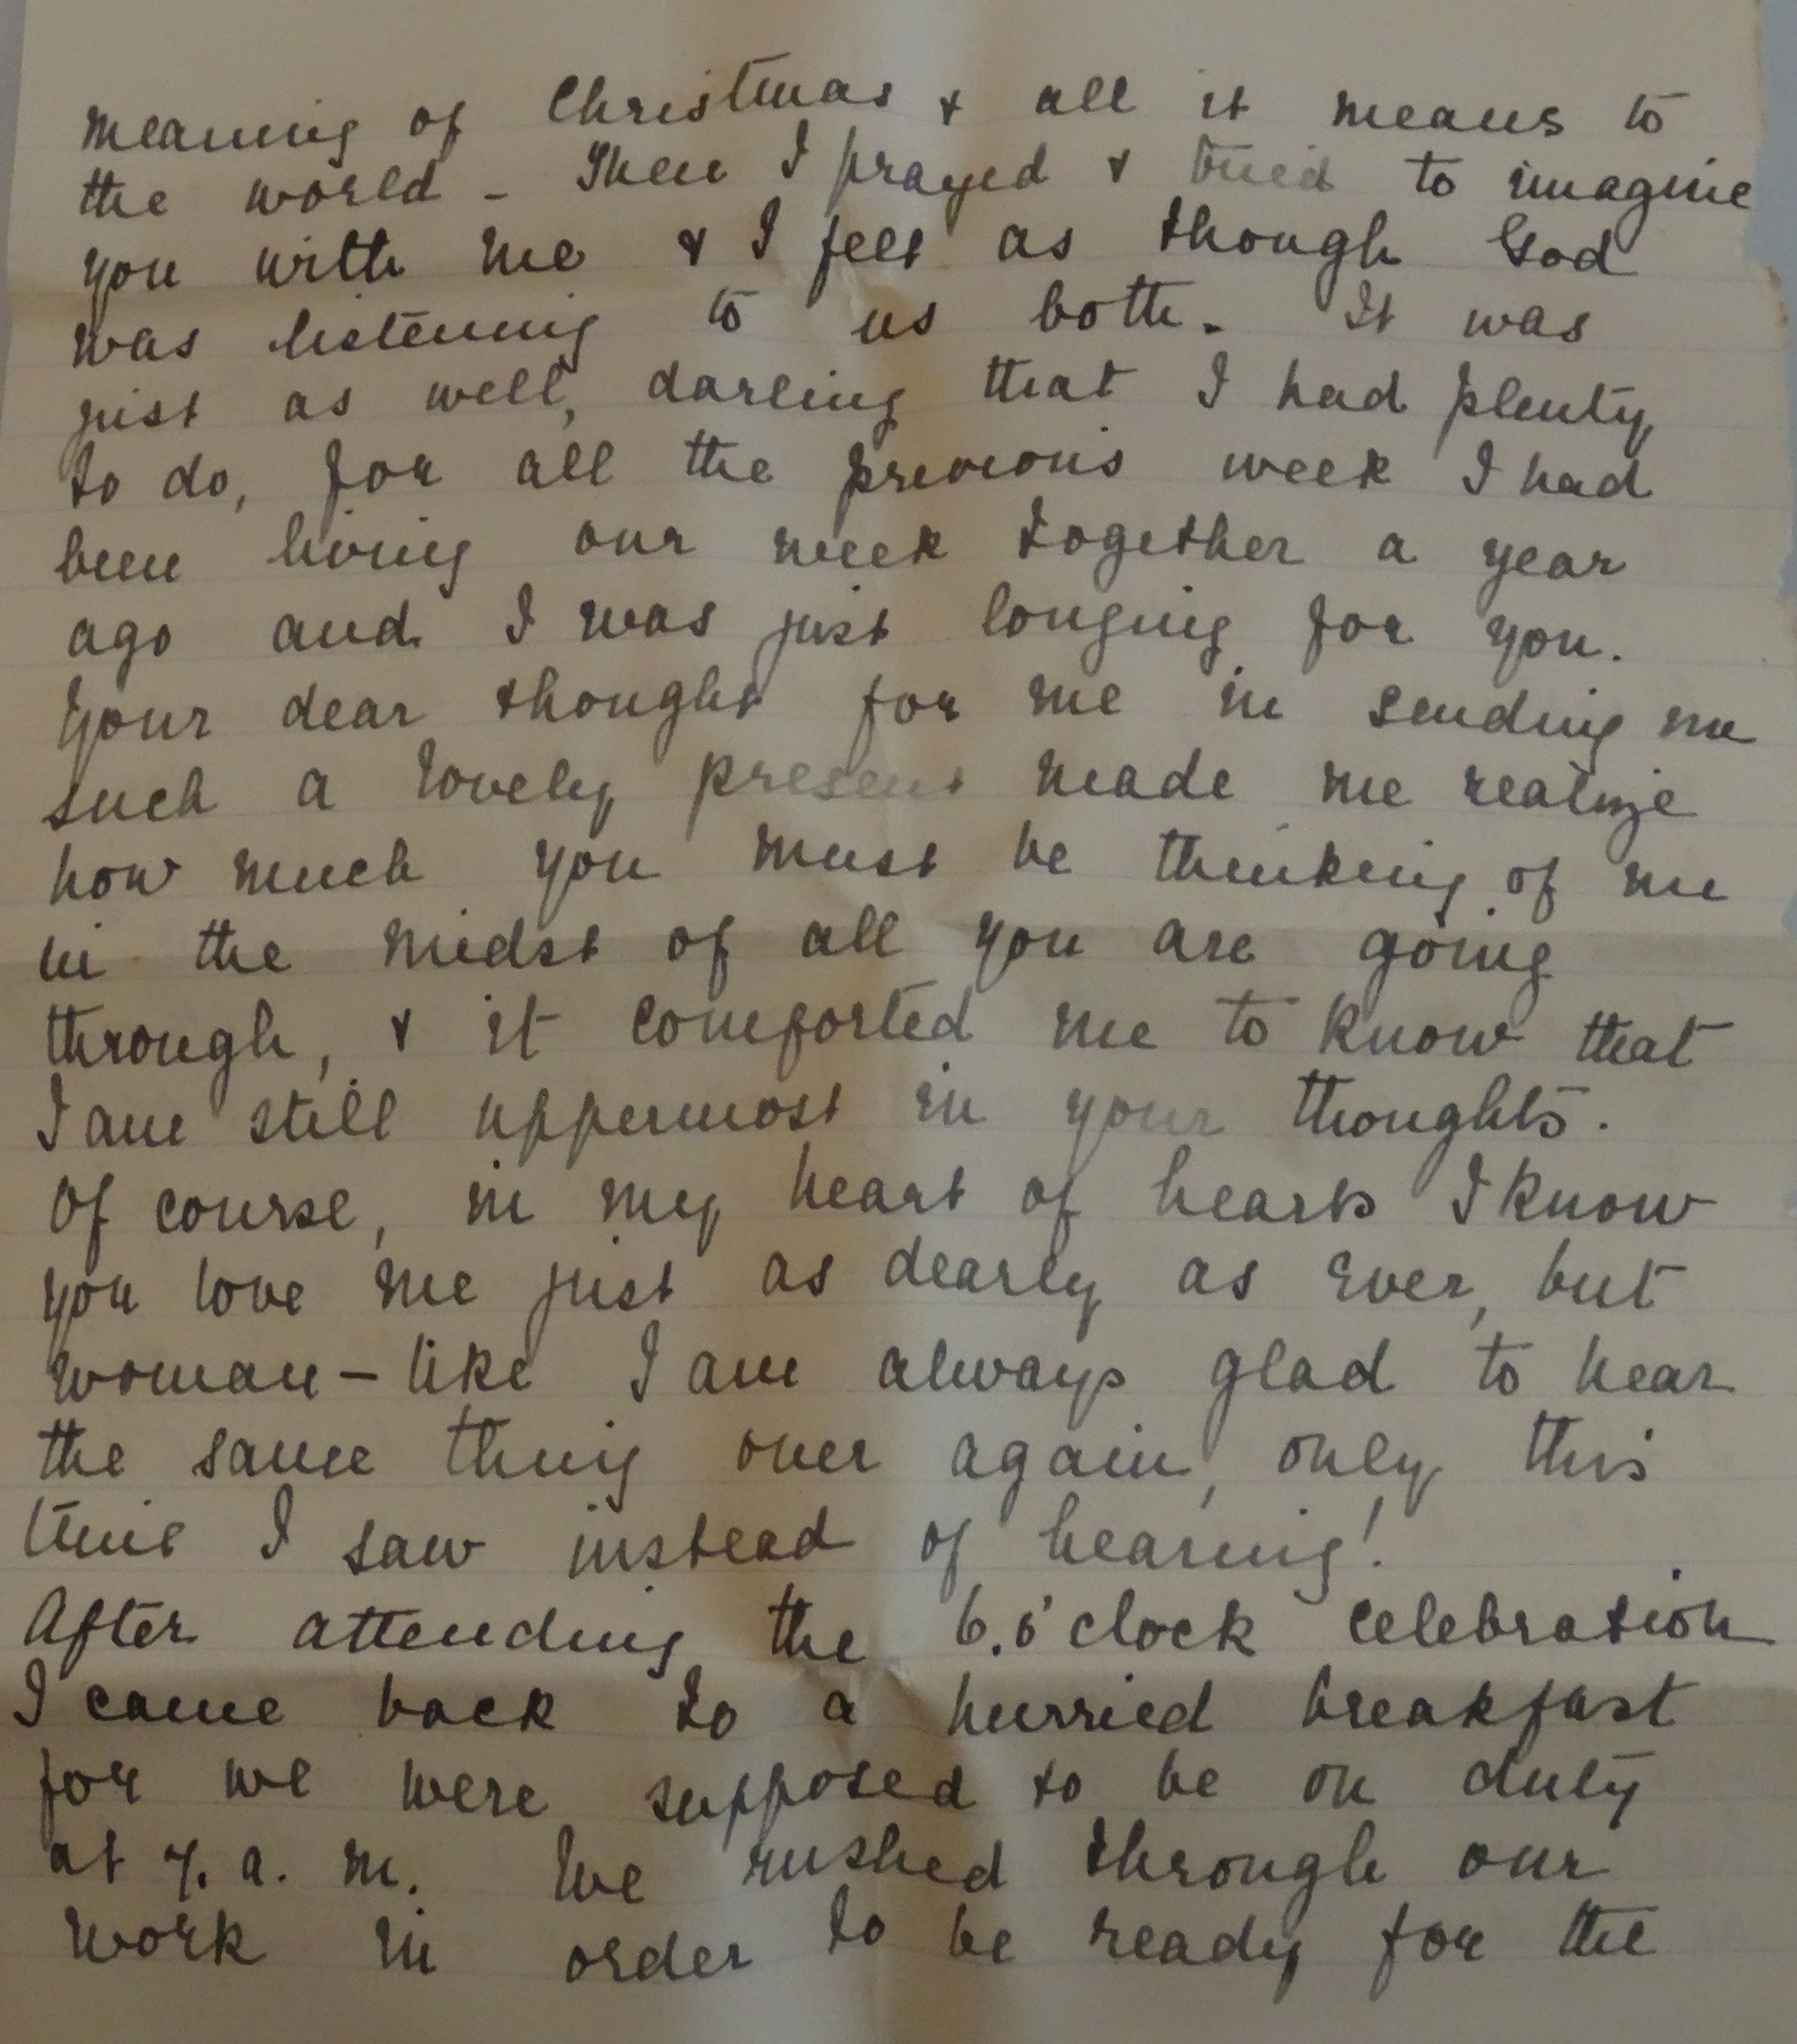 meaning of Christmas & all it means to
the world - Then I prayed & tried to imagine
you with me & I felt as though God
was listening to us both. It was
just as well, darling that I had plenty
to do, for all the previous week I had
been living our week together a year
ago and I was just longing for you.
Your dear thought for me in sending me
such a lovely present made me realize
how much you must be thinking of me
in the midst of all you are going
through, & it comforted me to know that
I am still uppermost in your thoughts.
Of course, in my heart of hearts I know
you love me just as dearly as ever, but
woman-like I am always glad to hear
the same thing over again, only this
time I saw instead of hearing!
After attending the 6.o'clock celebration
I came back to a hurried breakfast
for we were supposed to be on duty
at 7. a. m. We rushed through our
work in order to be ready for the